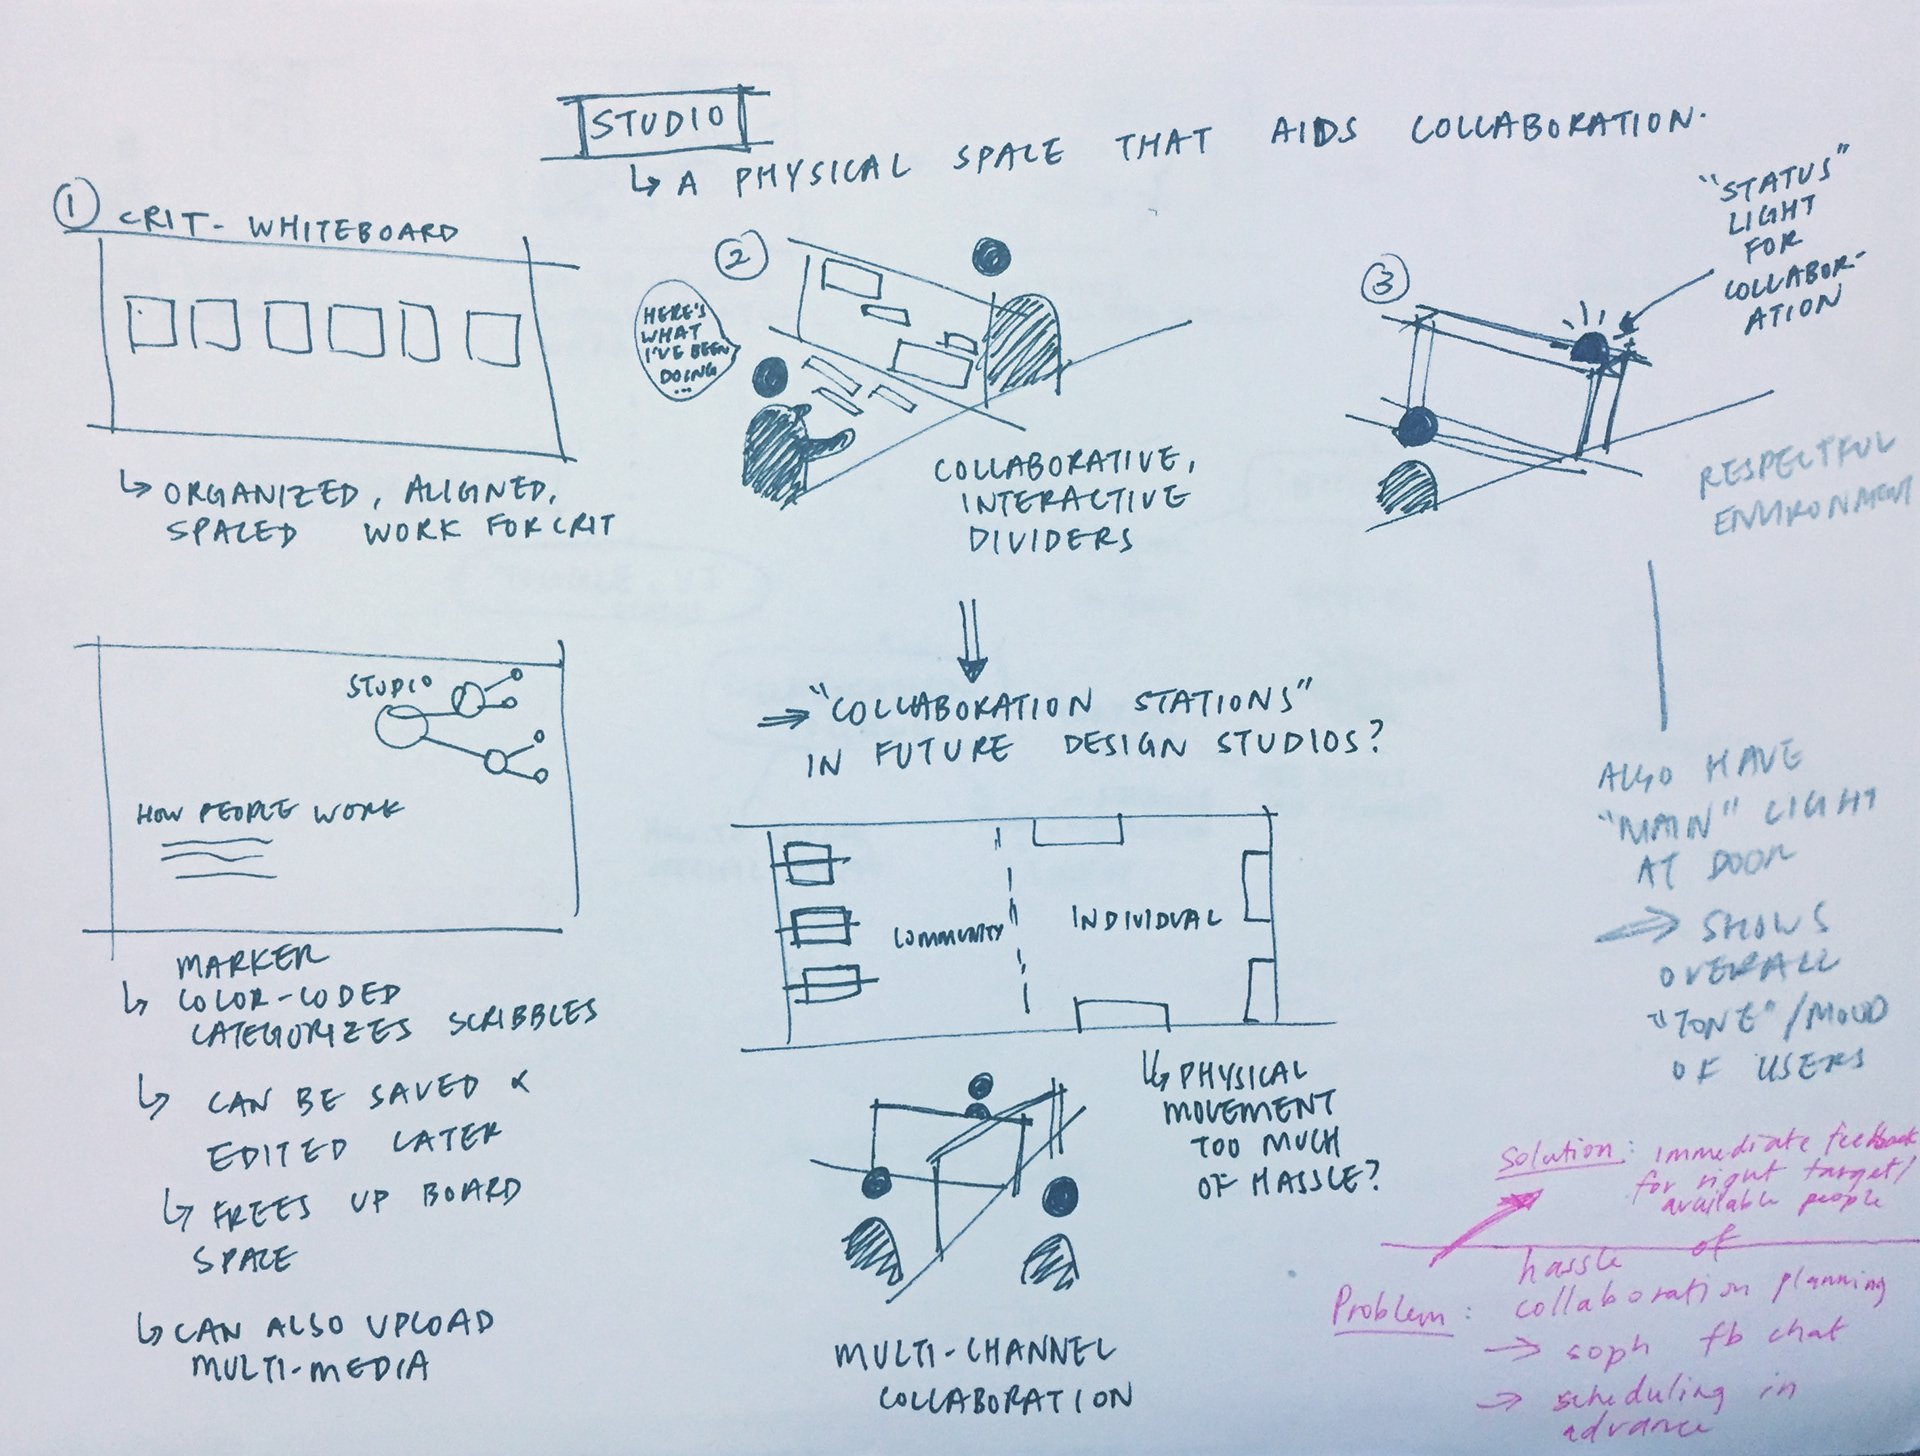 STUDIO
↳ A PHYSICAL SPACE THAT AIDS COLLABORATION.
① CRIT-WHITEBOARD
↳ ORGANIZED, ALIGNED,
SPACED WORK FOR CRIT
STUDIO
HOW PEOPLE WORK
MARKER
↳ COLOR-CODED
CATEGORIZES SCRIBBLES
↳ CAN BE SAVED &
EDITED LATER
↳ FREES UP BOARD
SPACE
↳ CAN ALSO UPLOAD
MULTI-MEDIA
②
HERE'S
WHAT
I'VE BEEN
DOING
...
COLLABORATIVE,
INTERACTIVE
DIVIDERS
⇒ "COLLABORATION STATIONS"
IN FUTURE DESIGN STUDIOS?
COMMUNITY
INDIVIDUAL
↳ PHYSICAL
MOVEMENT
TOO MUCH
OF HASSLE?
MULTI-CHANNEL
COLLABORATION
③
"STATUS"
LIGHT
FOR
COLLABOR-
ATION
RESPECTFUL
ENVIRONMENT
ALSO HAVE
"MAIN" LIGHT
AT DOOR
⇒ SHOWS
OVERALL
"TONE"/MOOD
OF USERS
Solution: immediate feedback
for right target/
available people
Problem: hassle of
collaboration planning
→ soph fb chat
→ scheduling in
advance